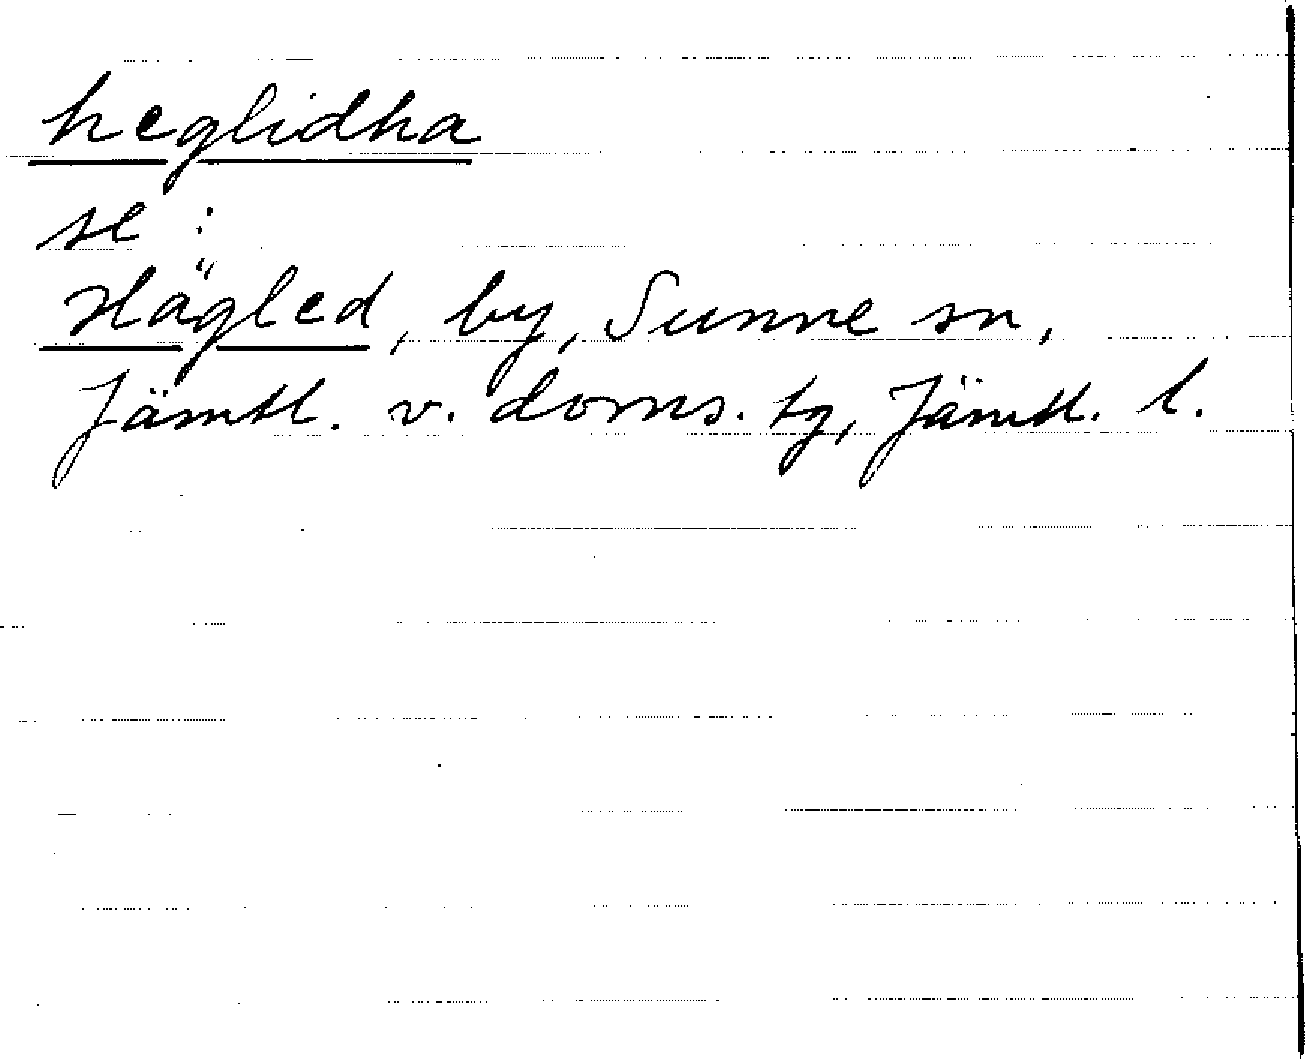 heglidha
se :
Hägled, by, Sunne sn,
Jämtl. v. doms. tg, Jämtl. l.